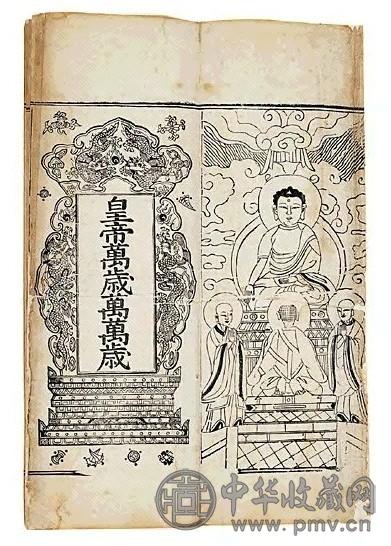 皇帝萬歲萬萬歲
中华收藏网
www.pmv.cn